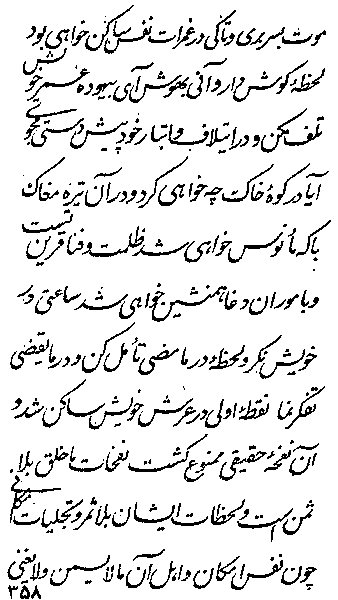 موت بسر بری و تا کی در غمرات نفس ساکن خواهی بود
لحظهٔ گوش دار و آنی بهوش آی بیهوده عمر خویش
تلف مکن و در ایتلاف و اتبار خود پیش دستی مجوی
آیا در کوهٔ خاک چه خواهی کرد و در آن تیره مغاک
با که مأنوس خواهی شد ظلمت و فنا قرین تست
و با موران دغا همنشین خواهی شد ساعتی در
خویش نگر و لحظهٔ در ما مضی تأمل کن و در ما یقضی
تفکر نما نقطهٔ اولی در عرش خویش ساکن شد و
آن نفحهٔ حقیقی ممنوع گشت نفحات ما خلق بلا
ثمن است و لحظات ایشان بلا ثمر و تجلیات
چون نفس امکان و اهل آن مالا یسمن ولا یغنی
۳۵۸